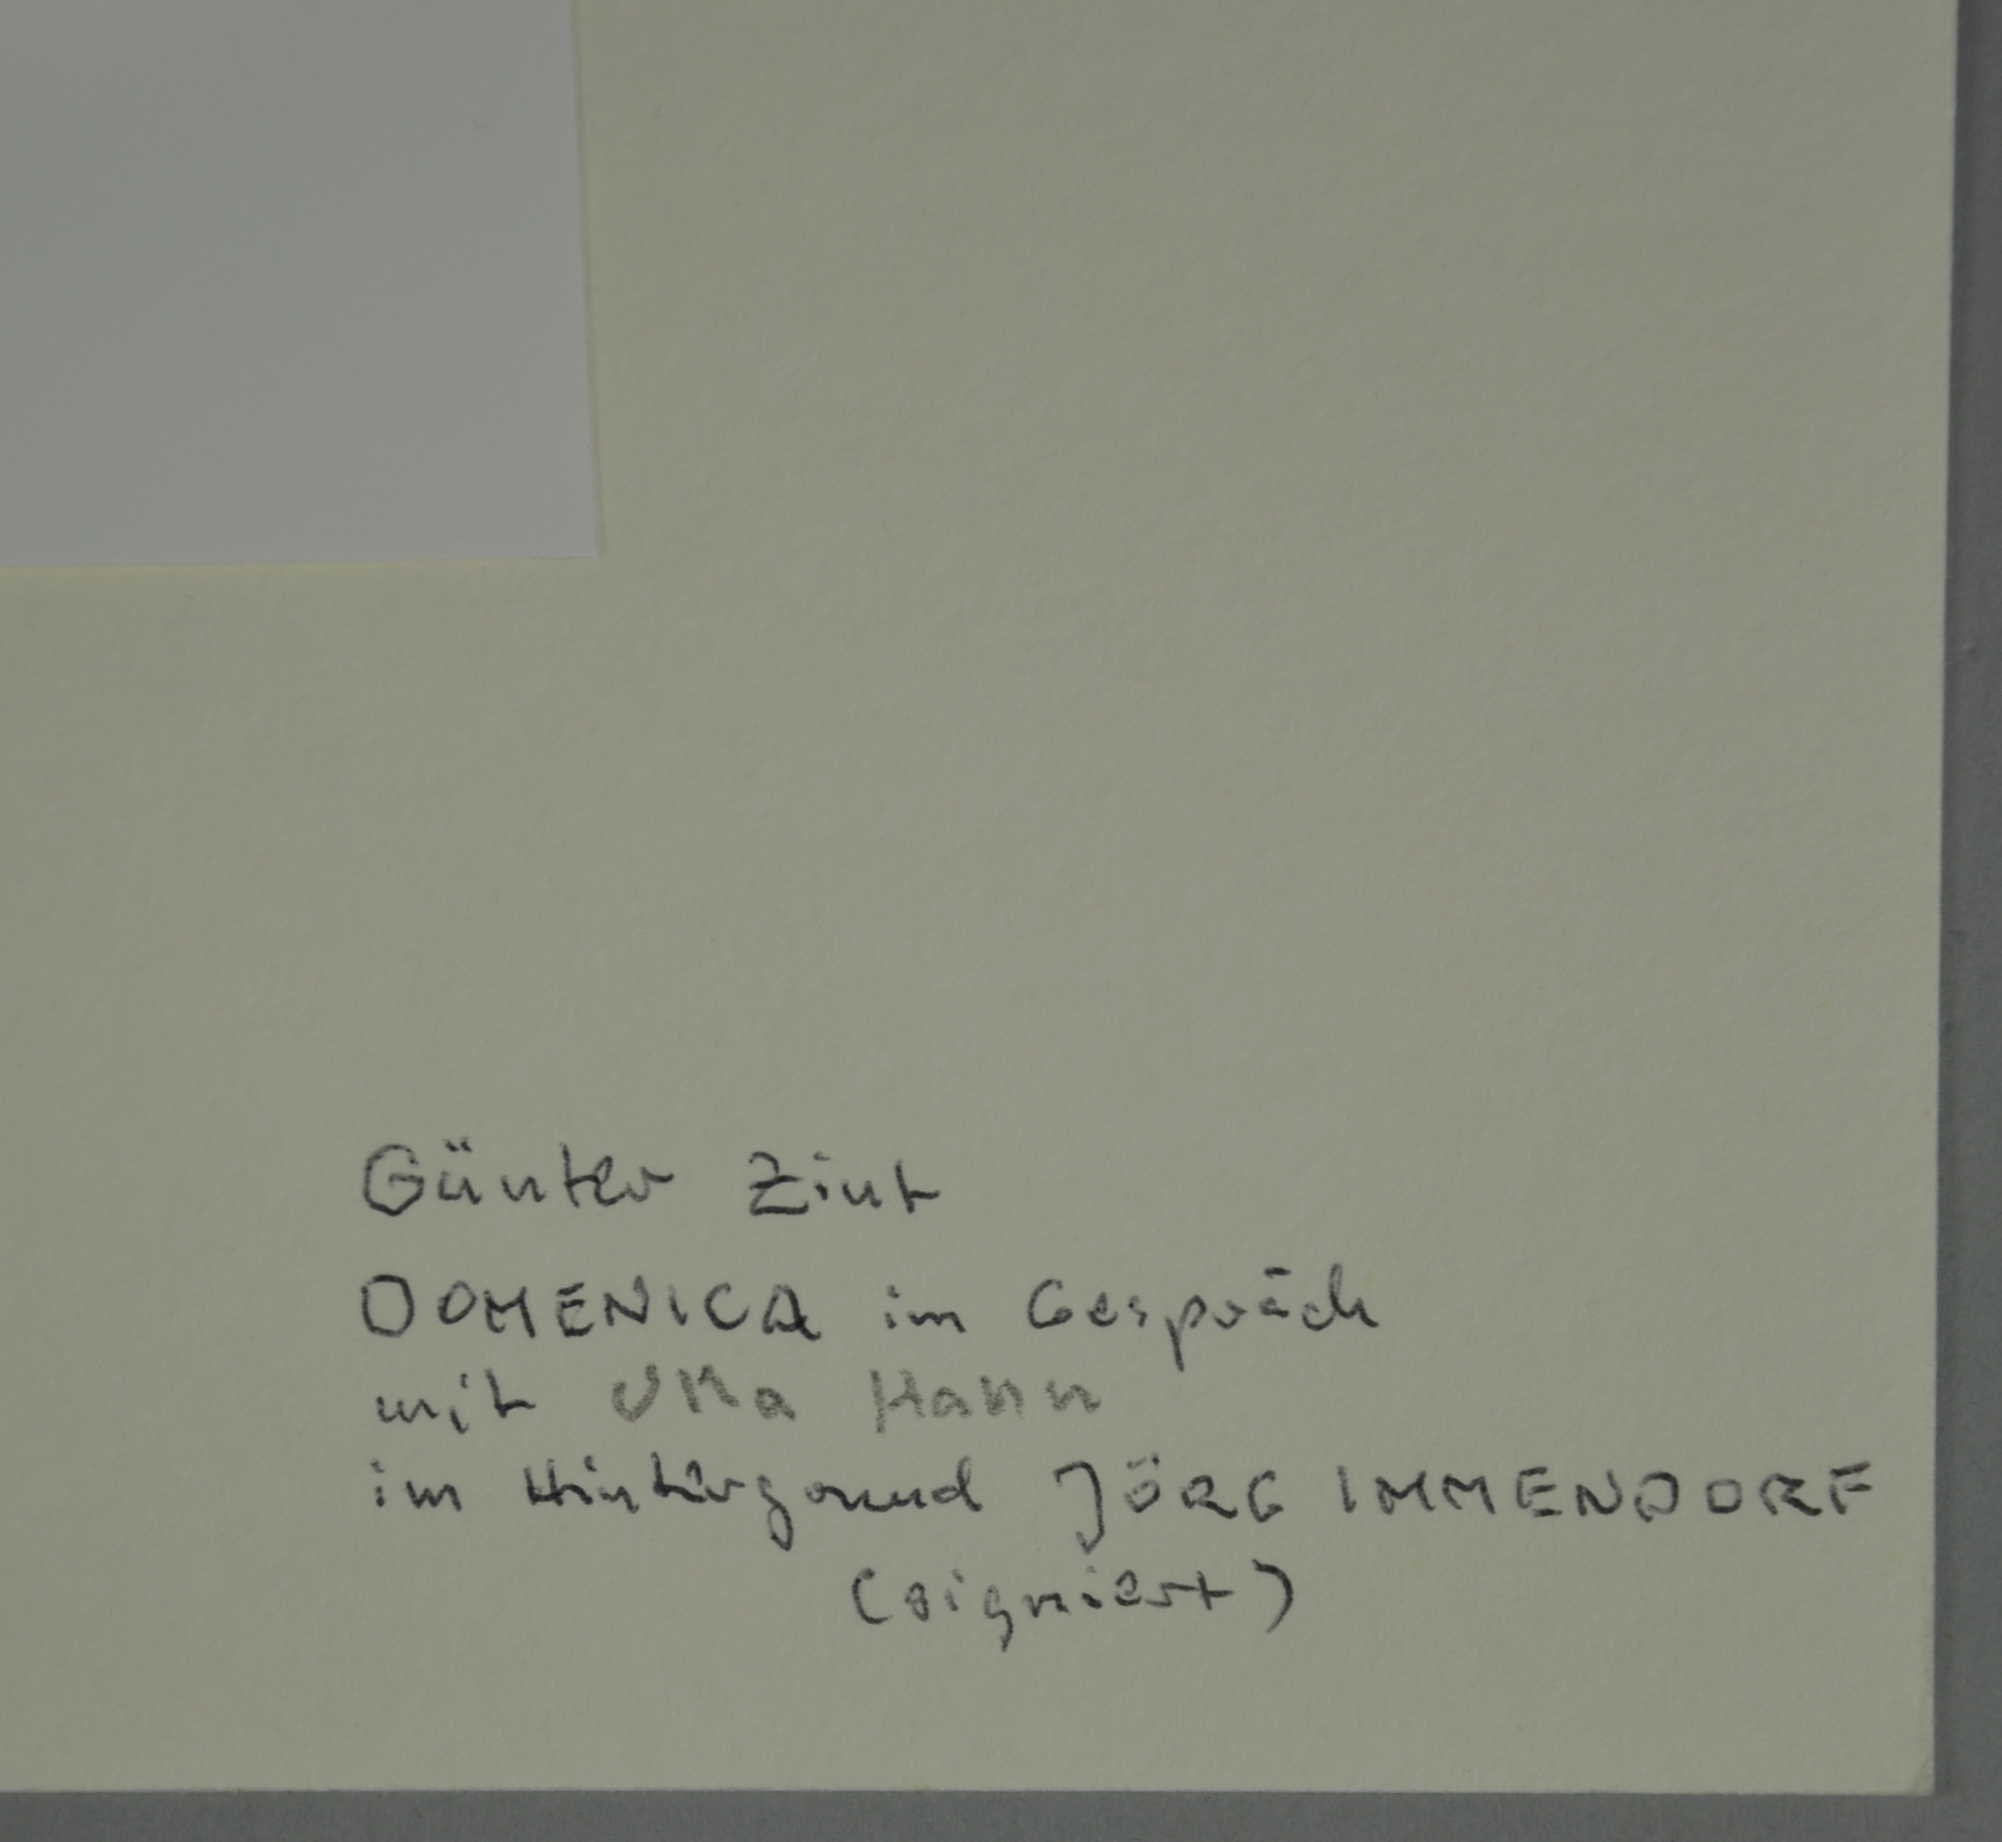 Günter Zint
DOMENICA im Gespräch
mit Ulla Hahn
im Hintergrund JÖRG IMMENDORF
(signiert)